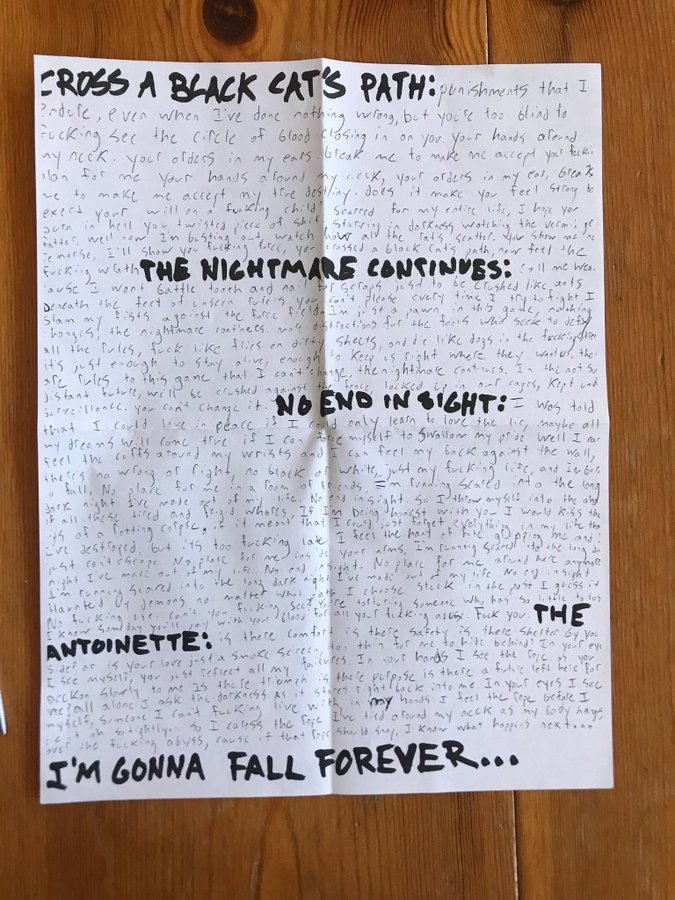 CROSS A BLACK CAT'S PATH: punishments that I
endure, even when I've done nothing wrong, but you're too blind to
fucking see the circle of blood closing in on you. your hands around
my neck. your orders in my ears. break me to make me accept your
plan for me your hands around my neck, your orders in my ear, break
me to make me accept my true destiny. does it make you feel strong to
exert your will on a fucking child? Scarred for my entire life, I hope you
burn in hell you twisted piece of shit. Starving in darkness watching the vermin get
fatter, well now I'm busting out watch how all the rats scatter. You show me no
remorse, I'll show you fucking force, you crossed a black cat's path, now feel the
fucking wrath THE NIGHTMARE CONTINUES: call me weak
cause I won't battle tooth and nail for scraps just to be crushed like ants
beneath the feet of unseen rulers you can't please every time I try to fight I
slam my fists against the force field I'm just a pawn in this game, nothing
changes, the nightmare continues. more distractions for the fools who seek to defy
all the rules, fuck like flies on dirty sheets, and die like dogs in the fucking street
it's just enough to stay alive, enough to keep us right where they want us, there
are rules to this game that I can't change, the nightmare continues. In the not so
distant future, we'll be crushed against the fence, locked up in our cages, kept under
surveillance. You can't change it. NO END IN SIGHT: I was told
that I could live in peace if I could only learn to love the lie, maybe all
my dreams will come true if I can force myself to swallow my pride well I can
feel the cuffs around my wrists and I can feel my back against the wall,
there's no wrong or right, no black or white, just my fucking life, and
to fall. No place for me in a room of friends I'm running scared into the long
dark night I've made out of my life. No end in sight. So I throw myself into the
of all these tired and frigid whores, If I'm being honest with you I would kiss the
of a rotting corpse, if it meant that I could just forget everything in my life that
I've destroyed, but it's too fucking late I feel the hand of fate gripping me and I
just can't escape. No place for me inside your arms, I'm running scared into the long dark
night I've made out of my life. No end in sight. No place for me around here anymore
I'm running scared into the long dark night I've made out of my life No end in sight
Haunted by demons no matter what path I choose stuck in the past I guess it
No fucking use. can't you fucking see? You're torturing someone who has so little to lose
I know someday you'll pay with your blood for all your fucking abuse. Fuck you. THE
ANTOINETTE: is there comfort is there safety is there shelter by your
side? or is your love just a smoke screen, too thin for me to hide behind? In your eyes
I see myself, you just reflect all my failures. In your hands I see the rope as you
beckon slowly to me Is there triumph is there purpose is there a future left here for
me? all alone I ask the darkness as it stares right back into me In your eyes I see
myself, someone I can't fucking live with in my hands I feel the rope before I
tie it oh so tightly. So I caress the rope I've tied around my neck as my body hangs
over the fucking abyss, cause if that rope should snap, I know what happens next...
I'M GONNA FALL FOREVER...